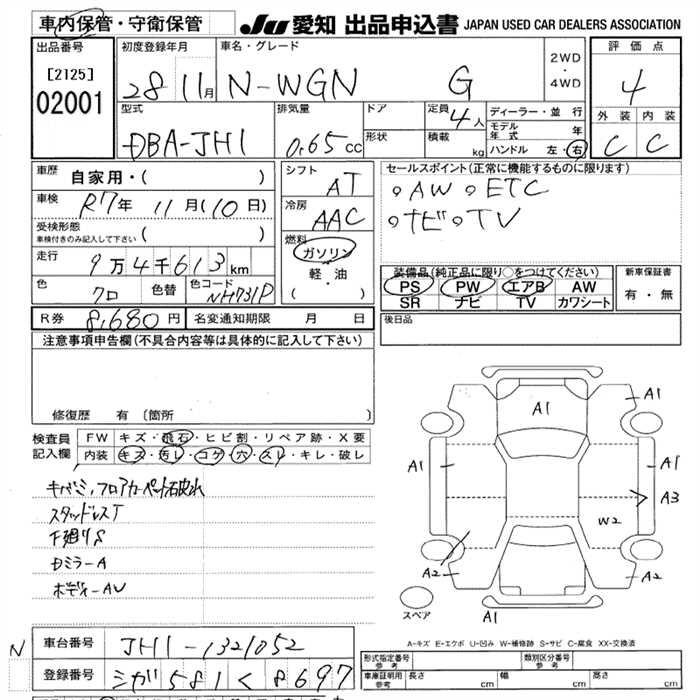 車内保管・守衛保管
JU 愛知 出品申込書 JAPAN USED CAR DEALERS ASSOCIATION
出品番号 初度登録年月 車名・グレード 2WD・4WD 評価点
[2125]
02001 28 11月 N-WGN G 4
型式 排気量 ドア 定員 4人 ディーラー・並行 外装 内装
DBA-JH1 0.65cc 形状 積載 kg モデル年式 年 C C
ハンドル 左・右
車歴 自家用・( ) シフト AT セールスポイント(正常に機能するものに限ります)
車検 R7年 11月(10日) 冷房 AAC ○AW ○ETC
受検形態 ( ) ○ナビ○TV
車検付きのみ記入して下さい
走行 9万4千613km 燃料 ガソリン 軽・油 ・( )
装備品(純正品に限り○をつけてください) 新車保証書
色 クロ 色替 色コード NH731P PS PW エアB AW 有・無
SR ナビ TV カワシート
R券 8,680円 名変通知期限 月 日 後日品
注意事項申告欄(不具合内容等は具体的に記入して下さい)
修復歴 有(箇所 )
検査員記入欄 FW キズ・飛石・ヒビ割・リペア跡・X要
内装 キズ・汚レ・コゲ・穴・スレ・キレ・破レ
キバミ、フロアカーペット破れ
スタッドレスT
下廻りS
Dミラ-A
ボディーAU
A1 A1
A1 A1 A3
W2
A2 A2
スペア A1
A-キズ E-エクボ U-凹み W-補修跡 S-サビ C-腐食 XX-交換済
N 車台番号 JH1-1321052
登録番号 シガ581く8697
形式指定番号 参考 類別区分番号 参考
車庫証明用 参考 長さ cm 幅 cm 高さ cm